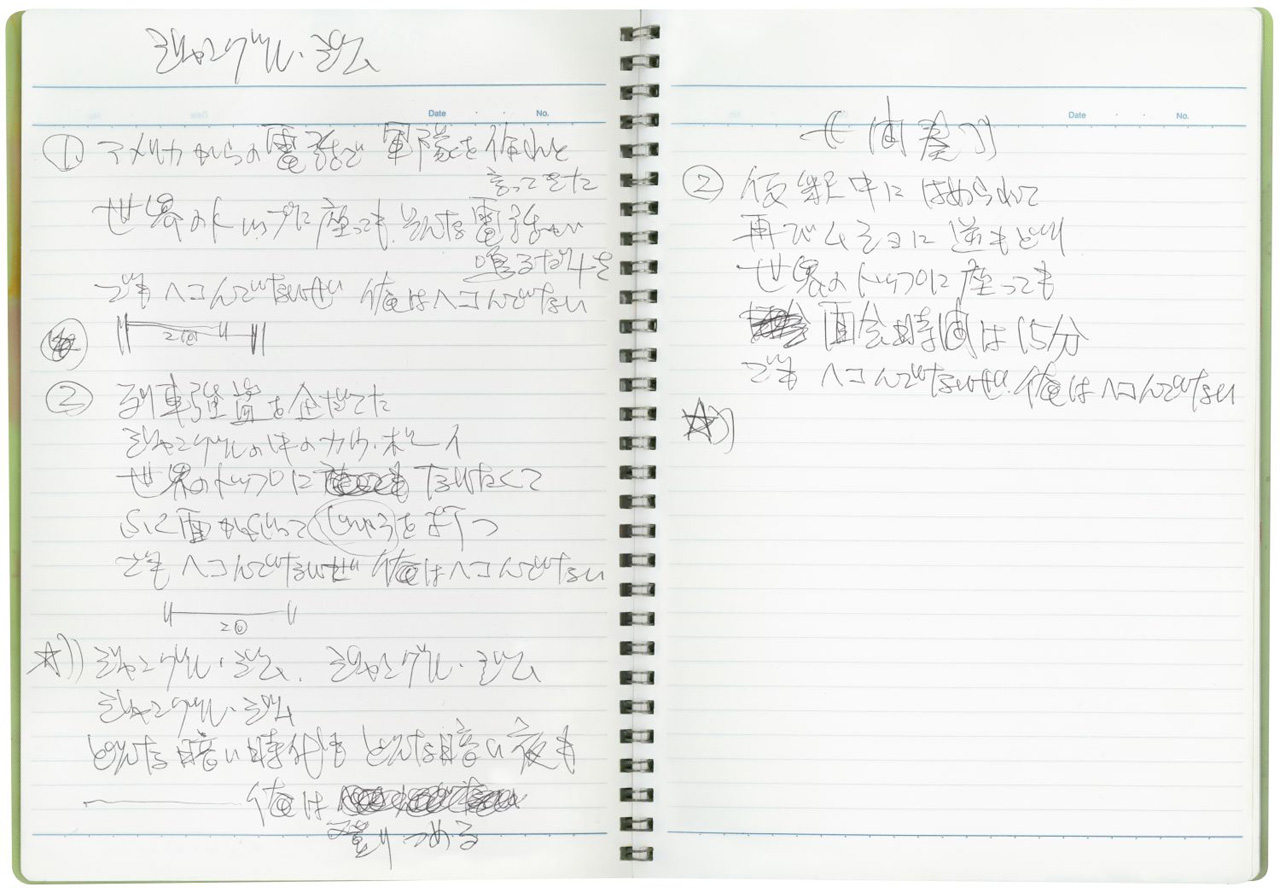 ジャングル・ジム
Date No.
① アメリカからの電話で 軍隊を作れと
言ってきた
世界のトップに座っても、そんな電話しかい
鳴るだけを
でも ヘコんでないぜ 俺はヘコんでない
2回
② 列車強盗を企だてた
ジャングルの中のカウ・ボーイ
世界のトップに なりたくて
でも ヘコんでないぜ 俺はヘコんでない
2回
☆)) ジャングル・ジム、ジャングル・ジム
ジャングル・ジム
どんな暗い時代も どんな暗い夜も
俺は
登りつめる
Date No.
《間奏》
② 仮釈中に はめられて
再びムショに逆もどり
世界のトップに座っても
面会時間は15分
でも ヘコんでないぜ 俺はヘコんでない
☆))